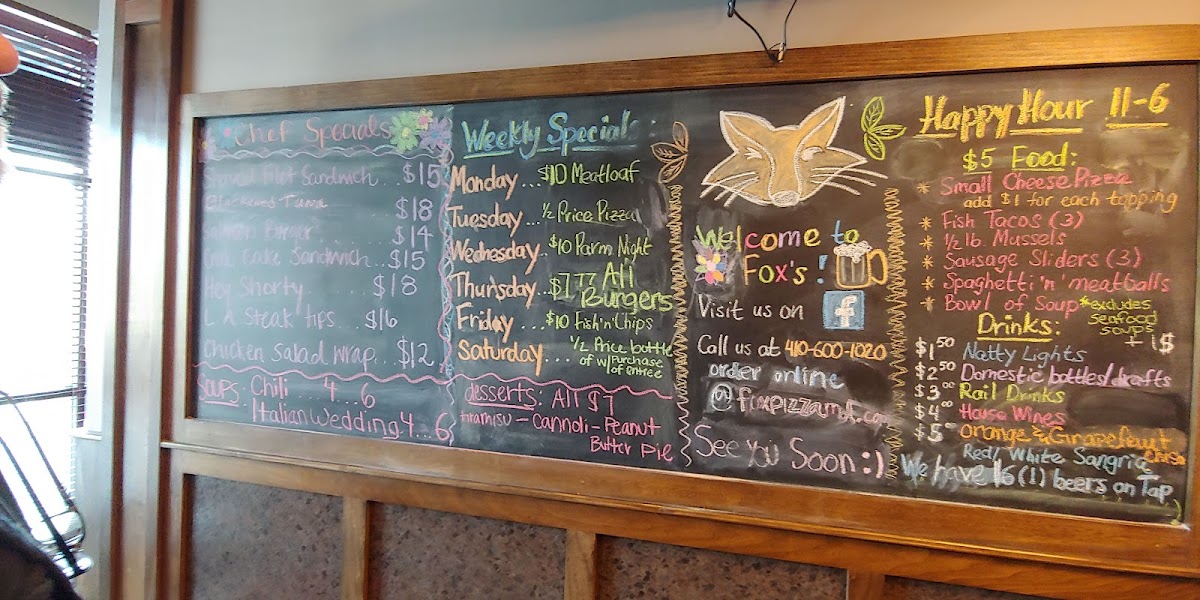 Chef Specials
Sandwich...$15
Blackened Tuna
$18
$14
Cake Sandwich...$15
Hey Shorty $18
L.A Steak tips...$16
Chicken Salad Wrap...$12
Soups: Chili 4...6
Italian Wedding 4...6
Weekly Specials:
Monday...$10 Meatloaf
Tuesday...½ Price Pizza
Wednesday...$10 Parm Night
Thursday...$7.77 All Burgers
Friday...$10 Fish'n'Chips
Saturday...½ Price bottle of w/ Purchase of entree
desserts: All $7
tiramisu - Cannoli - Peanut
Butter Pie
Welcome to
Fox's!
Visit us on f
Call us at 410-600-1020
order online
See You Soon :)
Happy Hour 11-6
$5 Food:
* Small Cheese Pizza
add $1 for each topping
* Fish Tacos (3)
* ½ lb. Mussels
* Sausage Sliders (3)
* Spaghetti 'n' meatballs
* Bowl of Soup *excludes
seafood
soups
+1$
Drinks:
$1.50 Natty Lights
$2.50 Domestic bottles/drafts
$3.00 Rail Drinks
$4.00 House Wines
$5.00 Orange & Grapefruit Crush
Red/White Sangria
We have 16 (1) beers on Tap